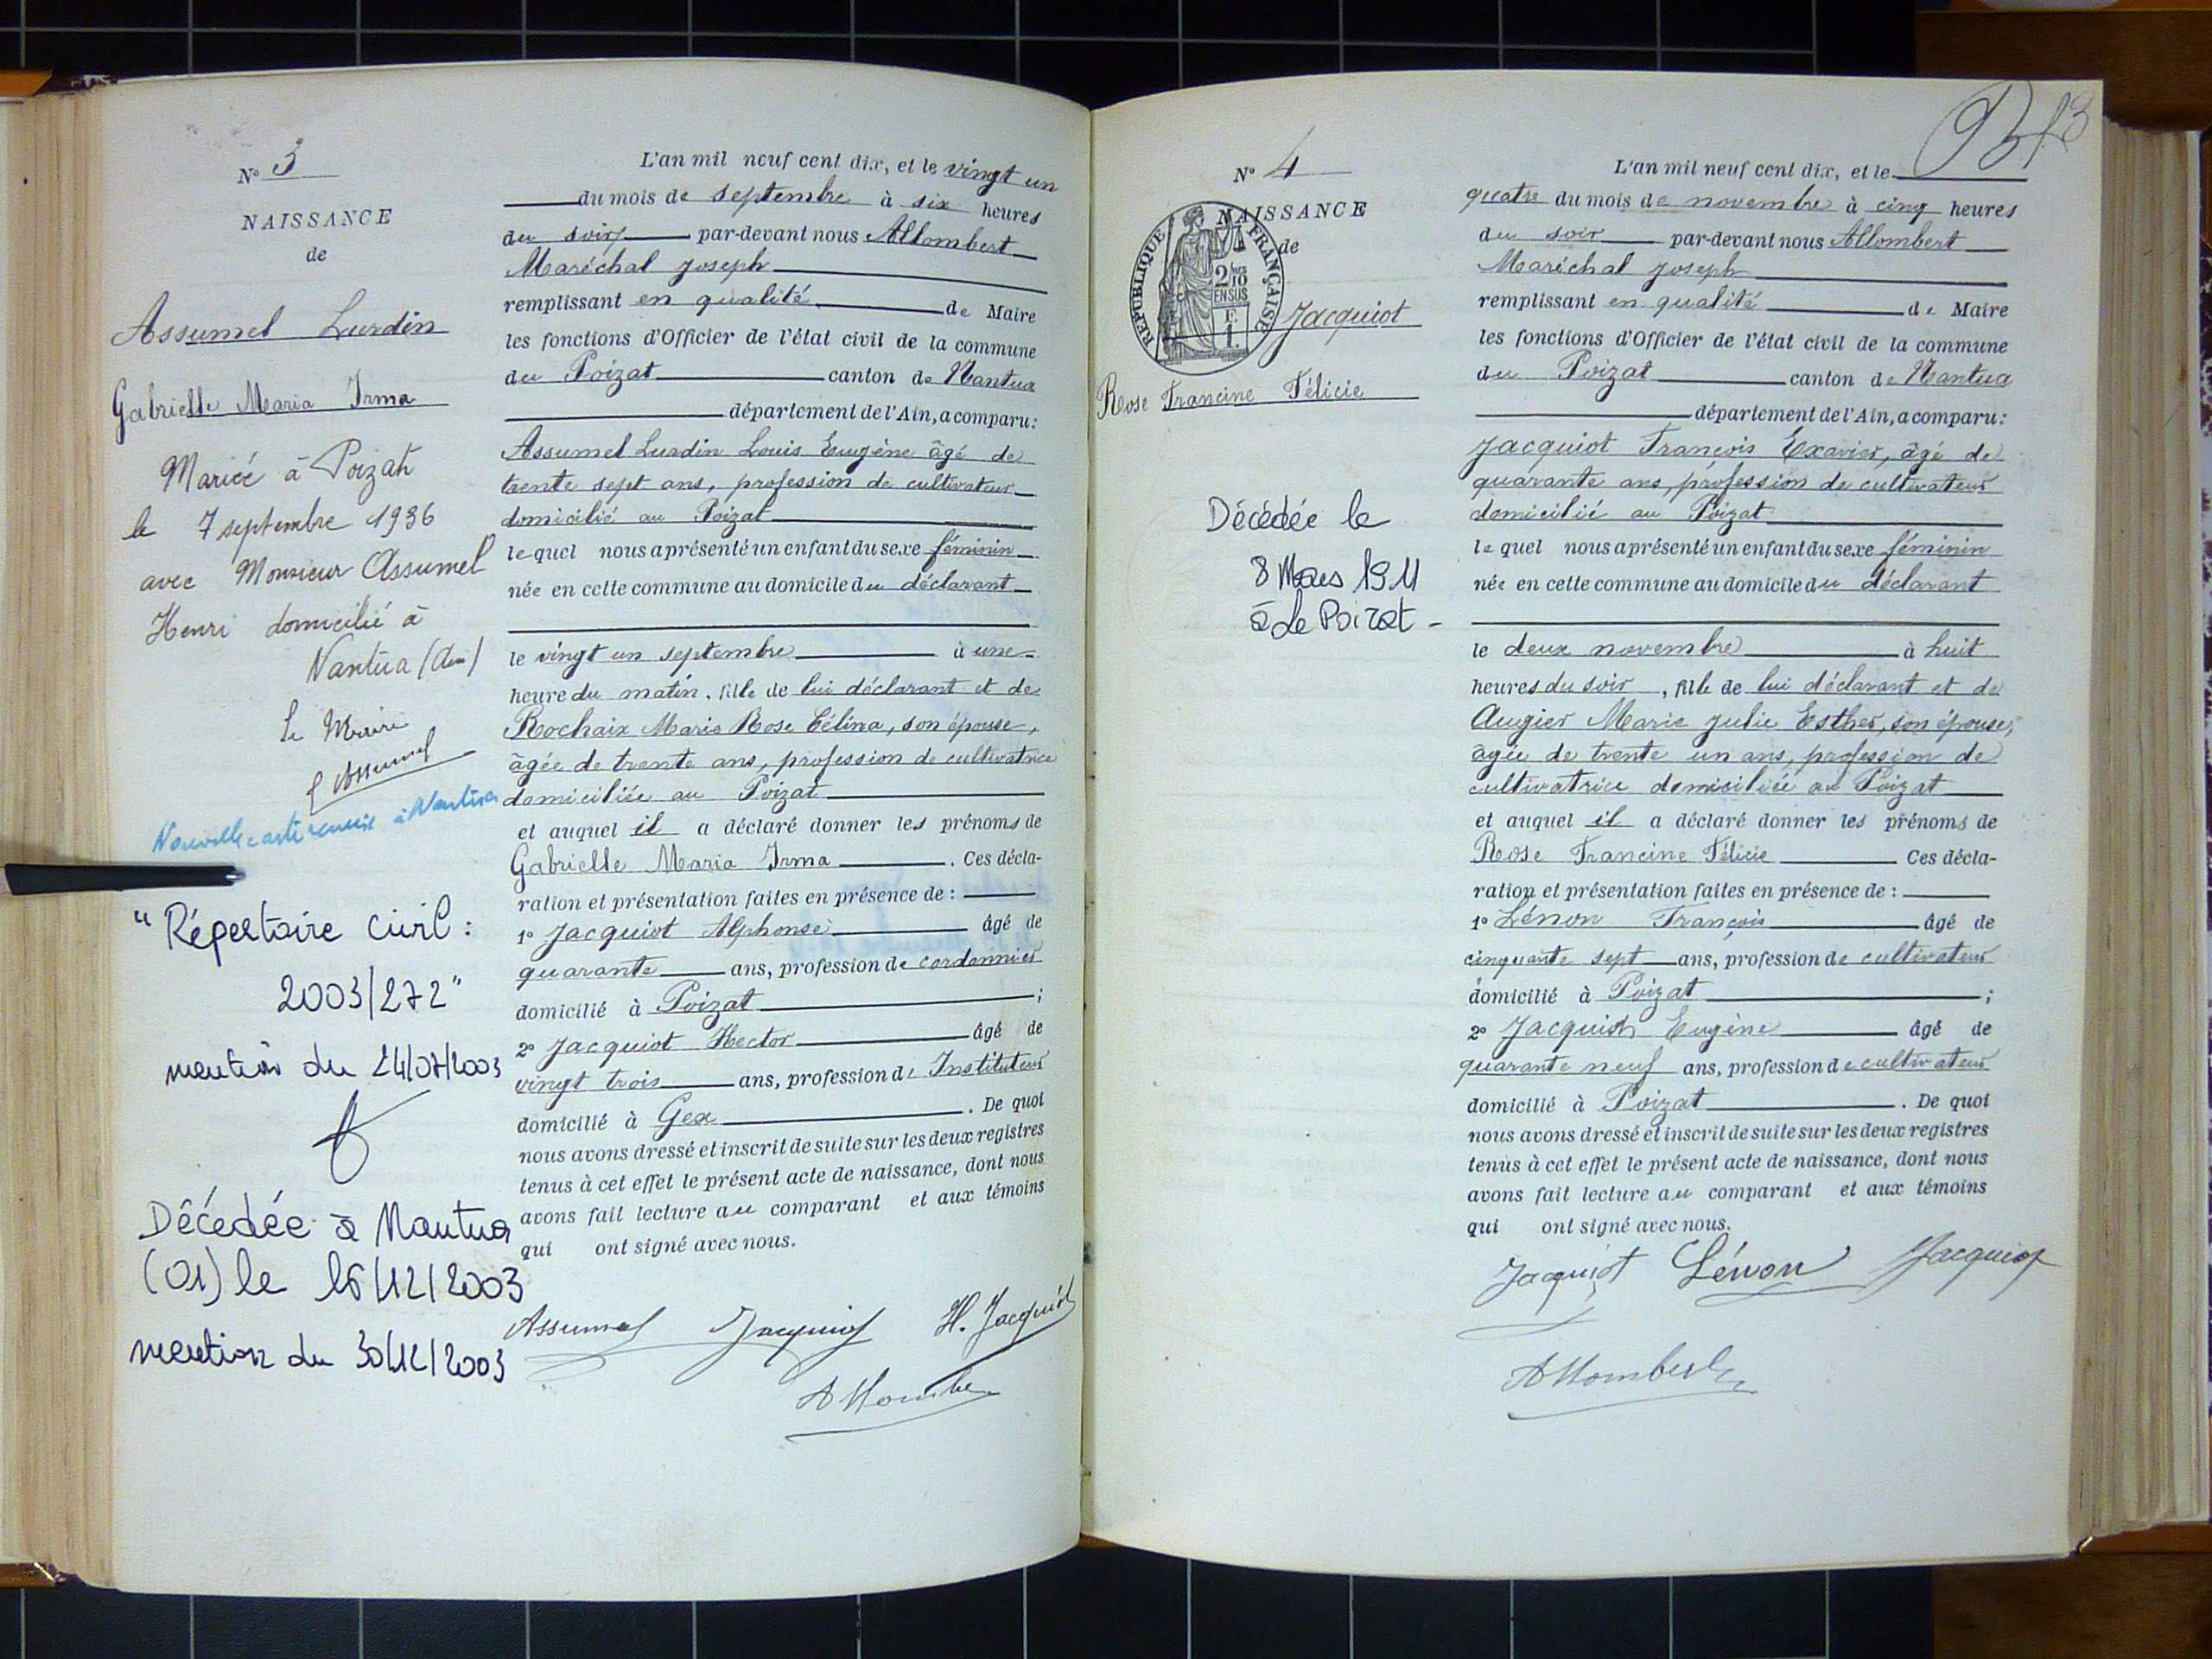 N° 3
NAISSANCE
de
Assumel Lurdin
Gabrielle Maria Irma
Mariée à Poizat
le 7 septembre 1936
avec Monsieur Assumel
Henri domicilié à
Nantua (Ain)
Le Maire
Assumel
Nouvelle carte remise à Nantua
"Répertoire civil :
2003/272"
mention du 24/07/2003
Décédée à Nantua
(01) le 16/12/2003
mention du 30/12/2003
L'an mil neuf cent dix, et le vingt un
du mois de septembre à six heures
du soir par-devant nous Allombert
Maréchal Joseph
remplissant en qualité de Maire
les fonctions d'Officier de l'état civil de la commune
du Poizat canton de Nantua
département de l'Ain, a comparu:
Assumel Lurdin Louis Eugène âgé de
trente sept ans, profession de cultivateur
domicilié au Poizat
lequel nous a présenté un enfant du sexe féminin
née en cette commune au domicile du déclarant
le vingt un septembre à une
heure du matin, fille de lui déclarant et de
Rochaix Marie Rose Célina, son épouse,
âgée de trente ans, profession de cultivatrice
domiciliée au Poizat
et auquel il a déclaré donner les prénoms de
Gabrielle Maria Irma. Ces décla-
ration et présentation faites en présence de :
1° Jacquiot Alphonse âgé de
quarante ans, profession de cordonnier
domicilié à Poizat ;
2° Jacquiot Hector âgé de
vingt trois ans, profession d' Instituteur
domicilié à Gex. De quoi
nous avons dressé et inscrit de suite sur les deux registres
tenus à cet effet le présent acte de naissance, dont nous
avons fait lecture au comparant et aux témoins
qui ont signé avec nous.
Assumel Jacquiot H. Jacquiot
Allombert
N° 4
NAISSANCE
de
RÉPUBLIQUE FRANÇAISE
2/10
EN SUS
F.
1.
Jacquiot
Rose Francine Félicie
Décédée le
8 Mars 1911
à Le Poizat -
L'an mil neuf cent dix, et le
quatre du mois de novembre à cinq heures
du soir par-devant nous Allombert
Maréchal Joseph
remplissant en qualité de Maire
les fonctions d'Officier de l'état civil de la commune
du Poizat canton de Nantua
département de l'Ain, a comparu:
Jacquiot François Exavier, âgé de
quarante ans, profession de cultivateur
domicilié au Poizat
lequel nous a présenté un enfant du sexe féminin
née en cette commune au domicile du déclarant
le deux novembre à huit
heures du soir, fille de lui déclarant et de
Augier Marie Julie Esther, son épouse,
âgée de trente un ans, profession de
cultivatrice domiciliée au Poizat
et auquel il a déclaré donner les prénoms de
Rose Francine Félicie Ces décla-
ration et présentation faites en présence de :
1° Lénon François âgé de
cinquante sept ans, profession de cultivateur
domicilié à Poizat ;
2° Jacquiot Eugène âgé de
quarante neuf ans, profession de cultivateur
domicilié à Poizat. De quoi
nous avons dressé et inscrit de suite sur les deux registres
tenus à cet effet le présent acte de naissance, dont nous
avons fait lecture au comparant et aux témoins
qui ont signé avec nous.
Jacquiot Lénon Jacquiot
Allombert